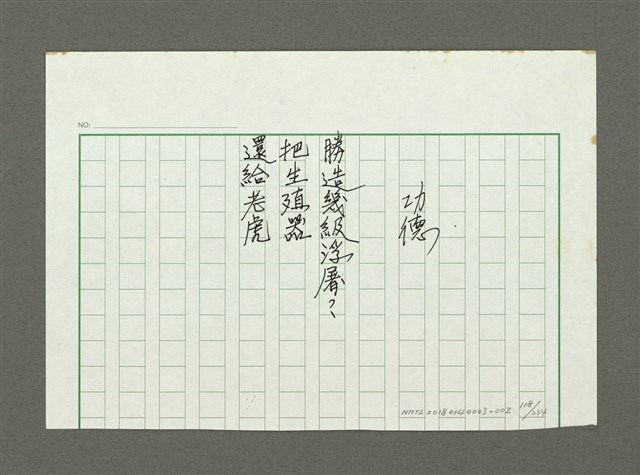 NO:
功德
勝造幾級浮屠？
把生殖器
還給老虎
NMTL20180140003-002 118/234